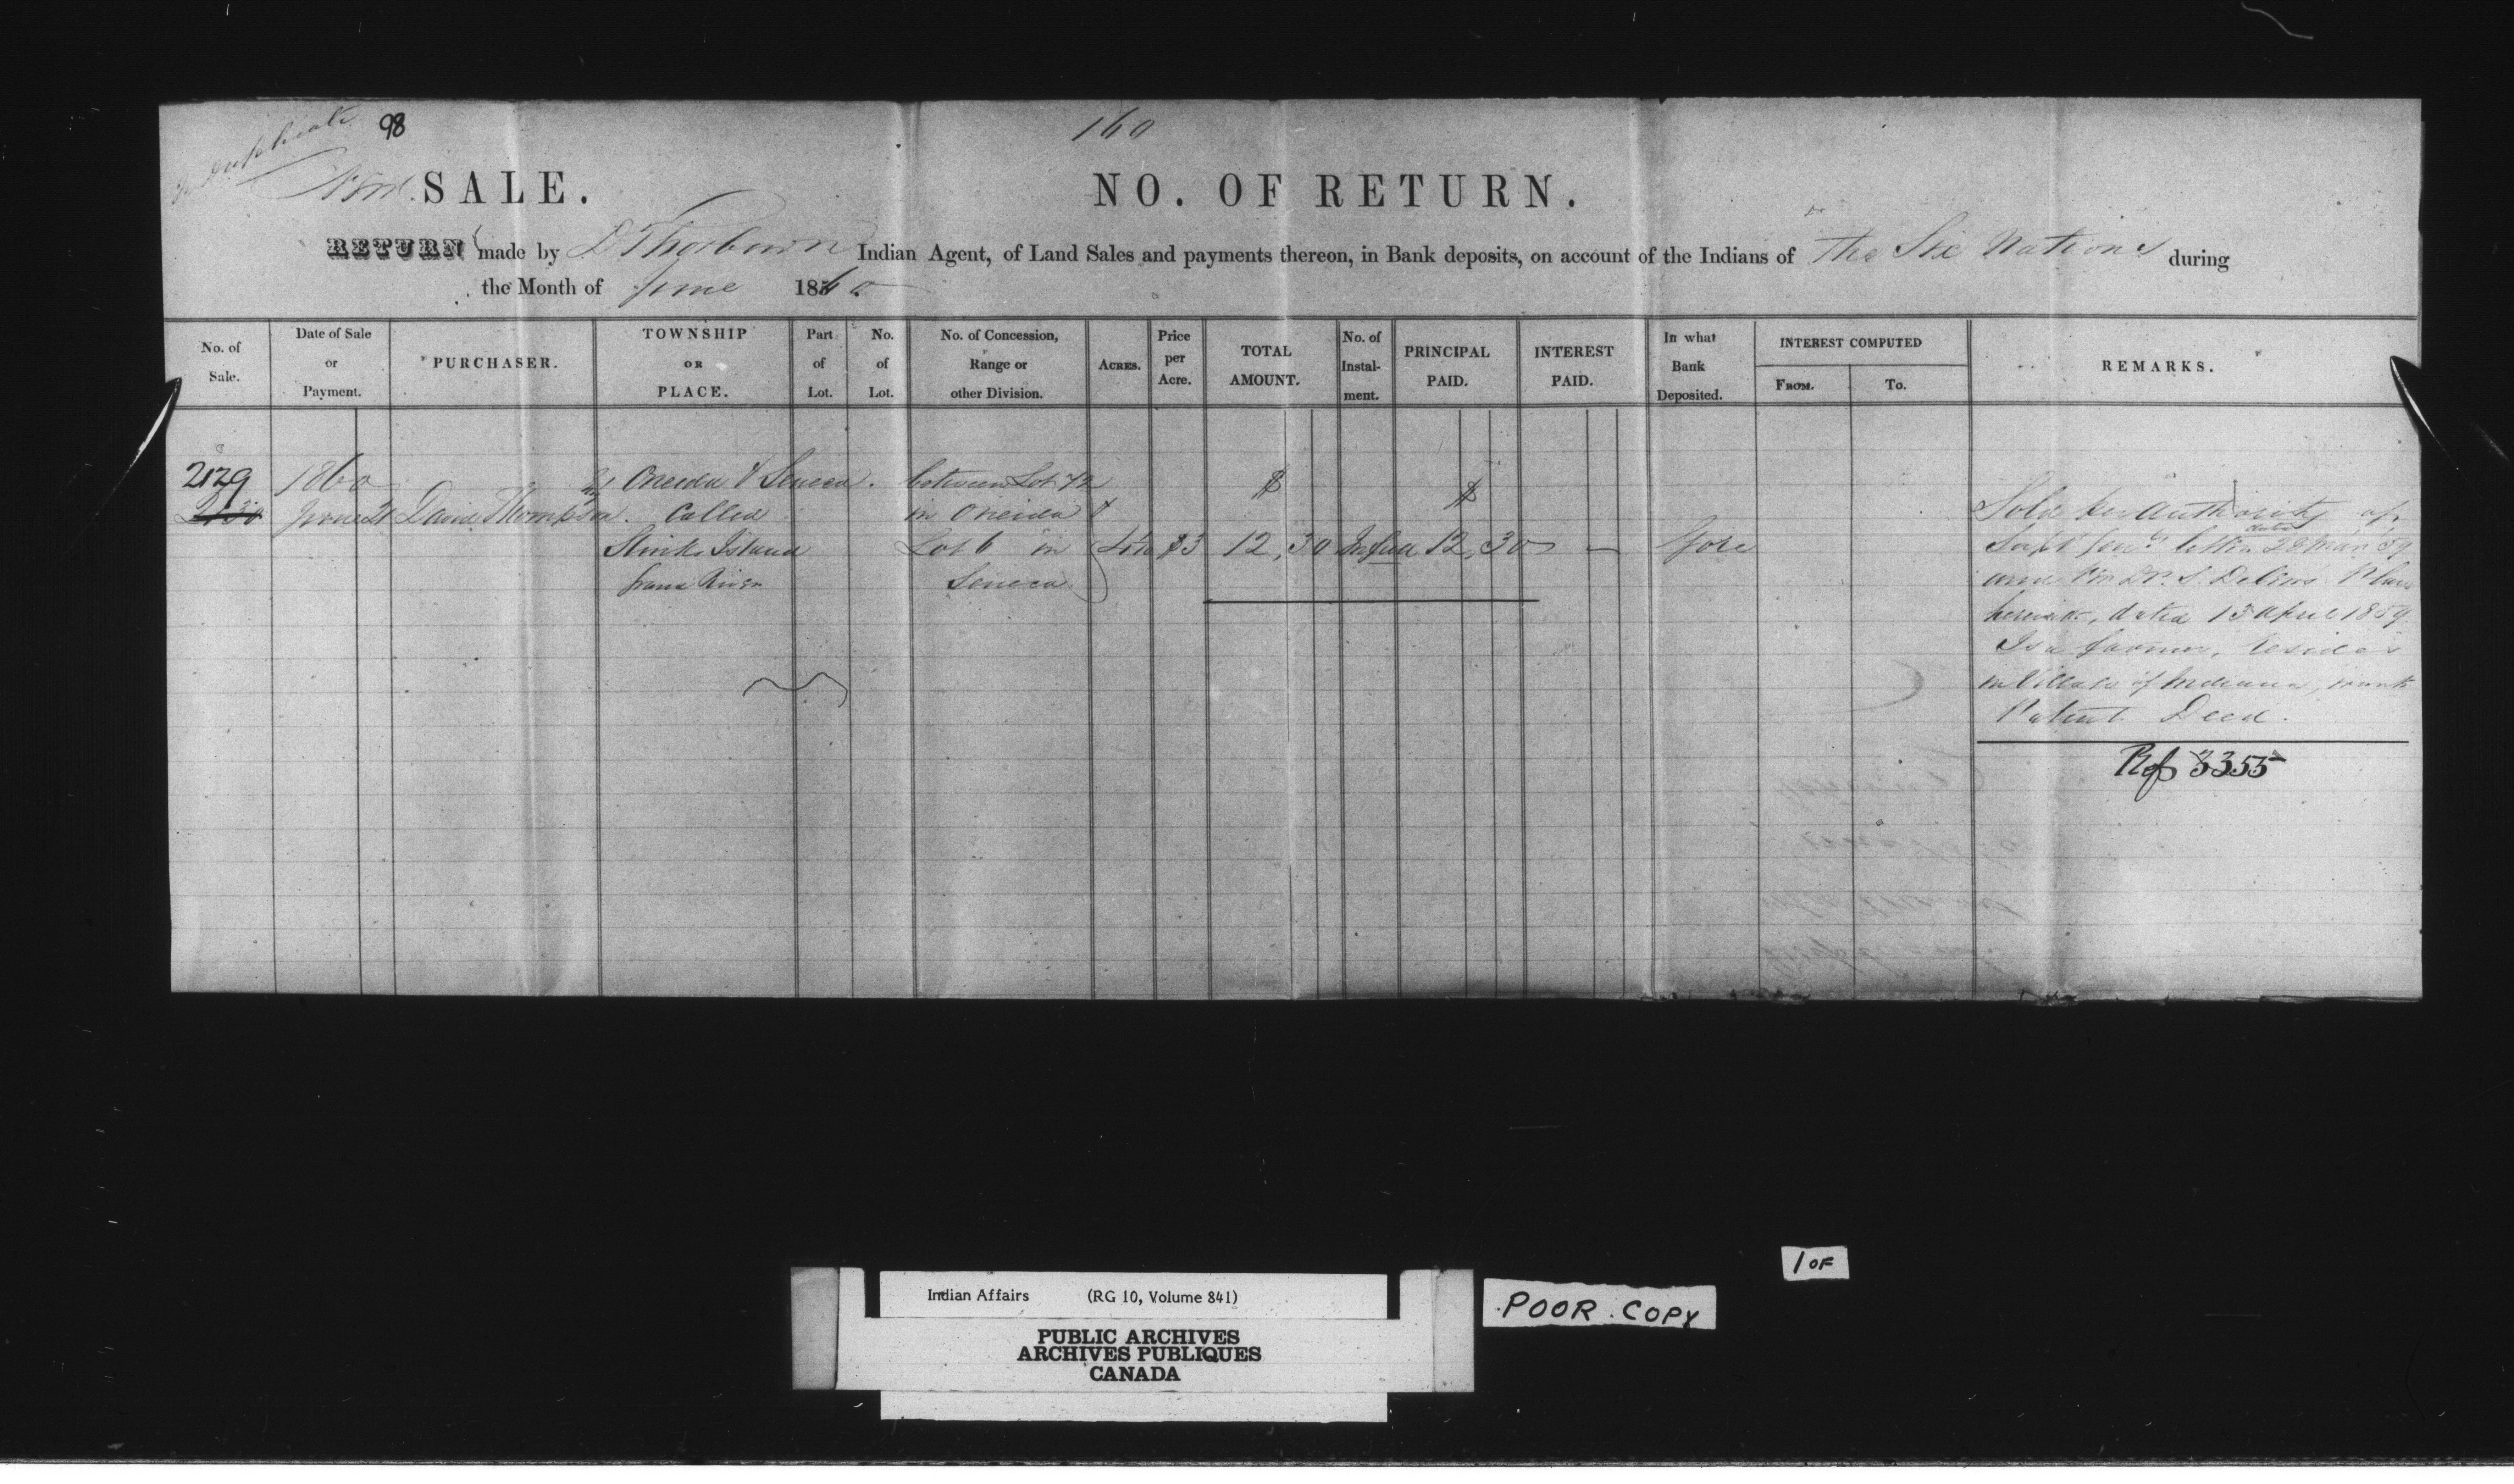 In Duplicate
98
160
New. SALE.
NO. OF RETURN.
RETURN made by D Thorburn Indian Agent, of Land Sales and payments thereon, in Bank deposits, on account of the Indians of The Six Nations during
the Month of June 1860
No. of Sale.
Date of Sale or Payment.
PURCHASER.
TOWNSHIP OR PLACE.
Part of Lot.
No. of Lot.
No. of Concession, Range or other Division.
ACRES.
Price per Acre.
TOTAL AMOUNT.
No. of Instalment.
PRINCIPAL PAID.
INTEREST PAID.
In what Bank Deposited.
INTEREST COMPUTED
FROM.
To.
REMARKS.
2129 1860 Oneida & Seneca. between Lot 72 $ $
2130 June 21 David Thompson. Called in Oneida &
Stinks Island Lot 6 in $3 12,30 In full 12,30 — Gore
Grand River Seneca
Sold per authority of
Supt Genls letter dated 28 Mar 59
and Dr. S. Plan
herewith, dated 15 April 1859
Is a farmer, resides
in Village of Indiana, wants
Patent Deed.
Ref 3355
1 OF
Indian Affairs (RG 10, Volume 841)
POOR COPY
PUBLIC ARCHIVES
ARCHIVES PUBLIQUES
CANADA